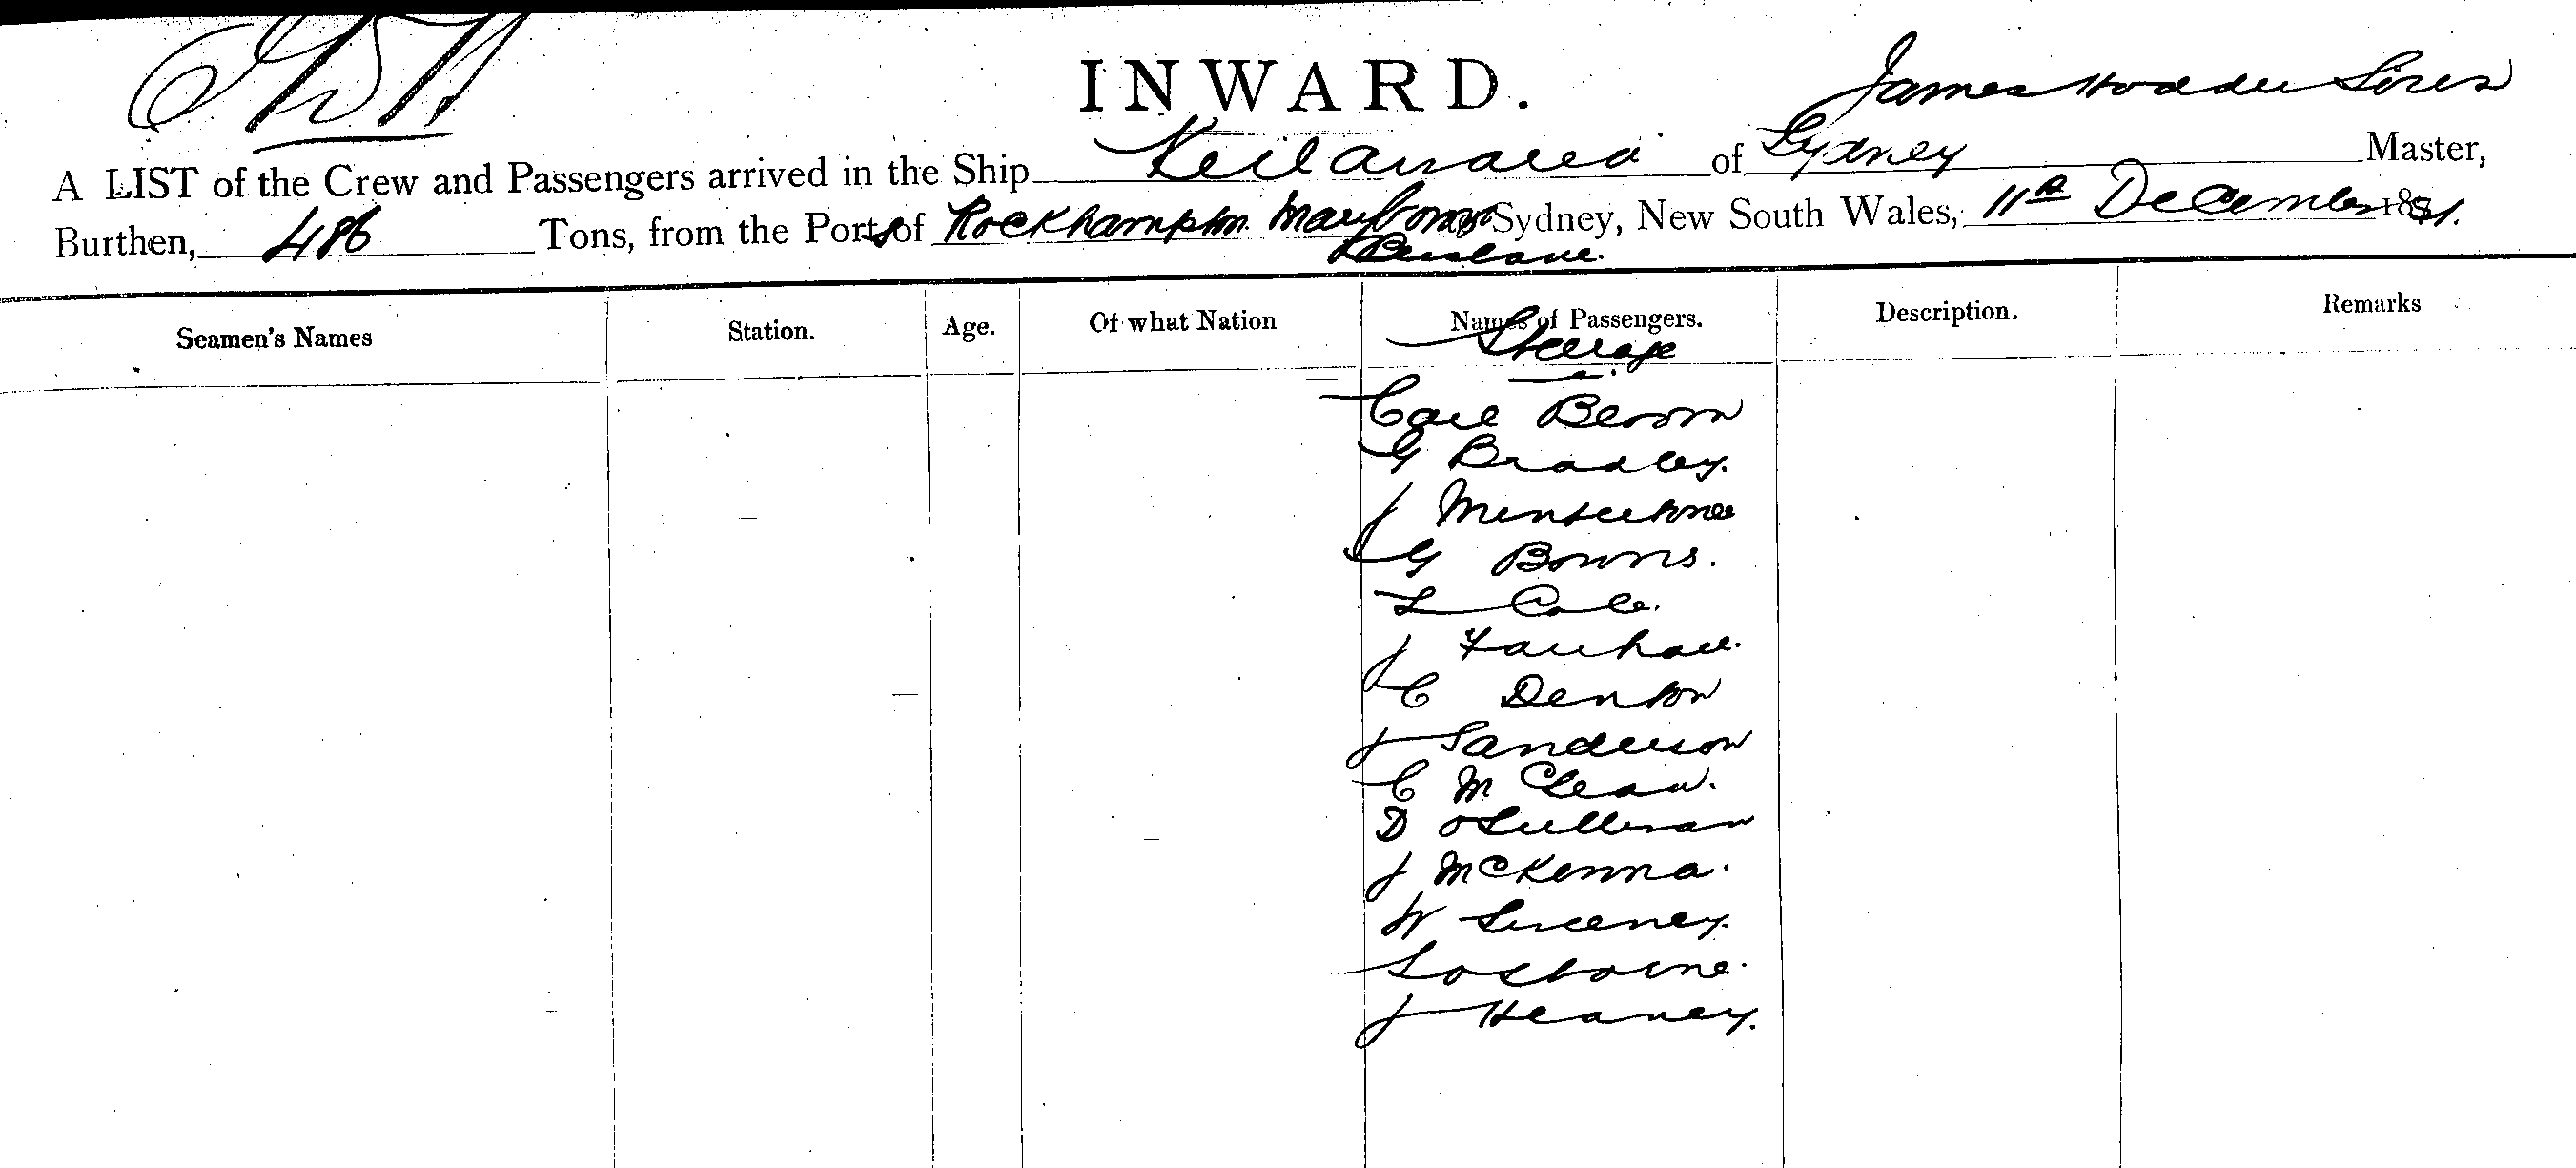 INWARD.
James Hodder Sires
A LIST of the Crew and Passengers arrived in the Ship Keilawarra of Sydney Master,
Burthen, 486 Tons, from the Ports of Rockhampton Maryboro Sydney, New South Wales, 11th December 1881.
& Brisbane.
Seamen's Names Station. Age. Of what Nation Names of Passengers. Description. Remarks
Steerage
Carl Bloom
G Bradley.
J
G Bowns.
L Cole.
J Fairhall.
C Denton
J Sanderson
C McLean.
D O'Sullivan
J McKenna.
W Sweeney.
J Heaney.